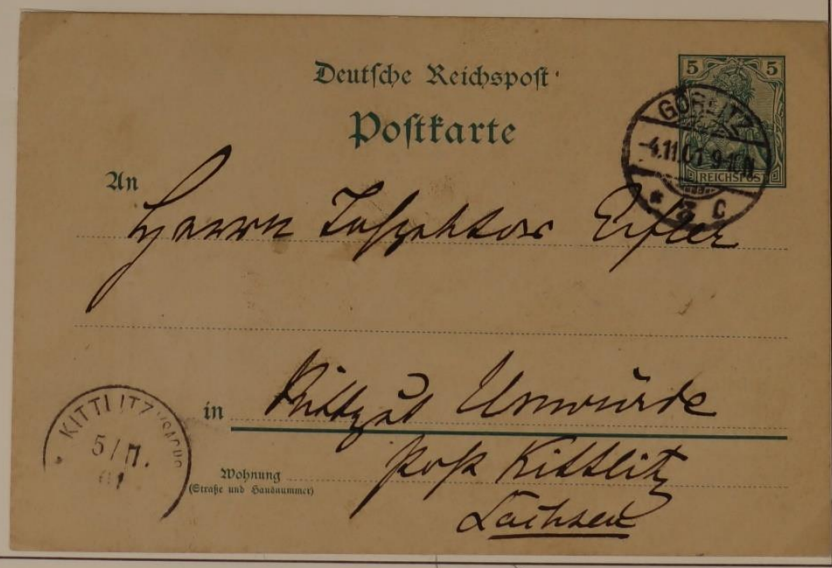 Deutsche Reichspost
Postkarte
5 5
REICHSPOST
GÖRLITZ
-4.11.01 9-10N
* 3 C
An
Herrn Inspektor Eifler
in Rittgut Unwürde
Post Kittlitz
Wohnung
(Straße und Hausnummer)
Sachsen
KITTLITZ
5/11.
01